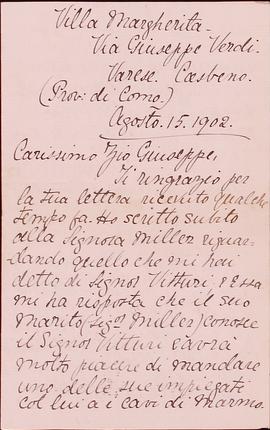 Villa Margherita.
Via Giuseppe Verdi.
Varese. Casbeno.
(Prov: di Como.)
Agosto. 15. 1902.
Carissimo Zio Giuseppe,
Ti ringrazio per
la tua lettera ricevuto qualche
tempo fa. Ho scritto subito
alla Signora Miller riguar-
dando quello che mi hai
detto di Signor Vitturi, e Essa
mi ha risposta che il suo
Marito (Sigor Miller) conosce
il Signor Vitturi e avrà
molto piacere di mandare
uno delle sue impiegati
col lui a i cavi di marmo.